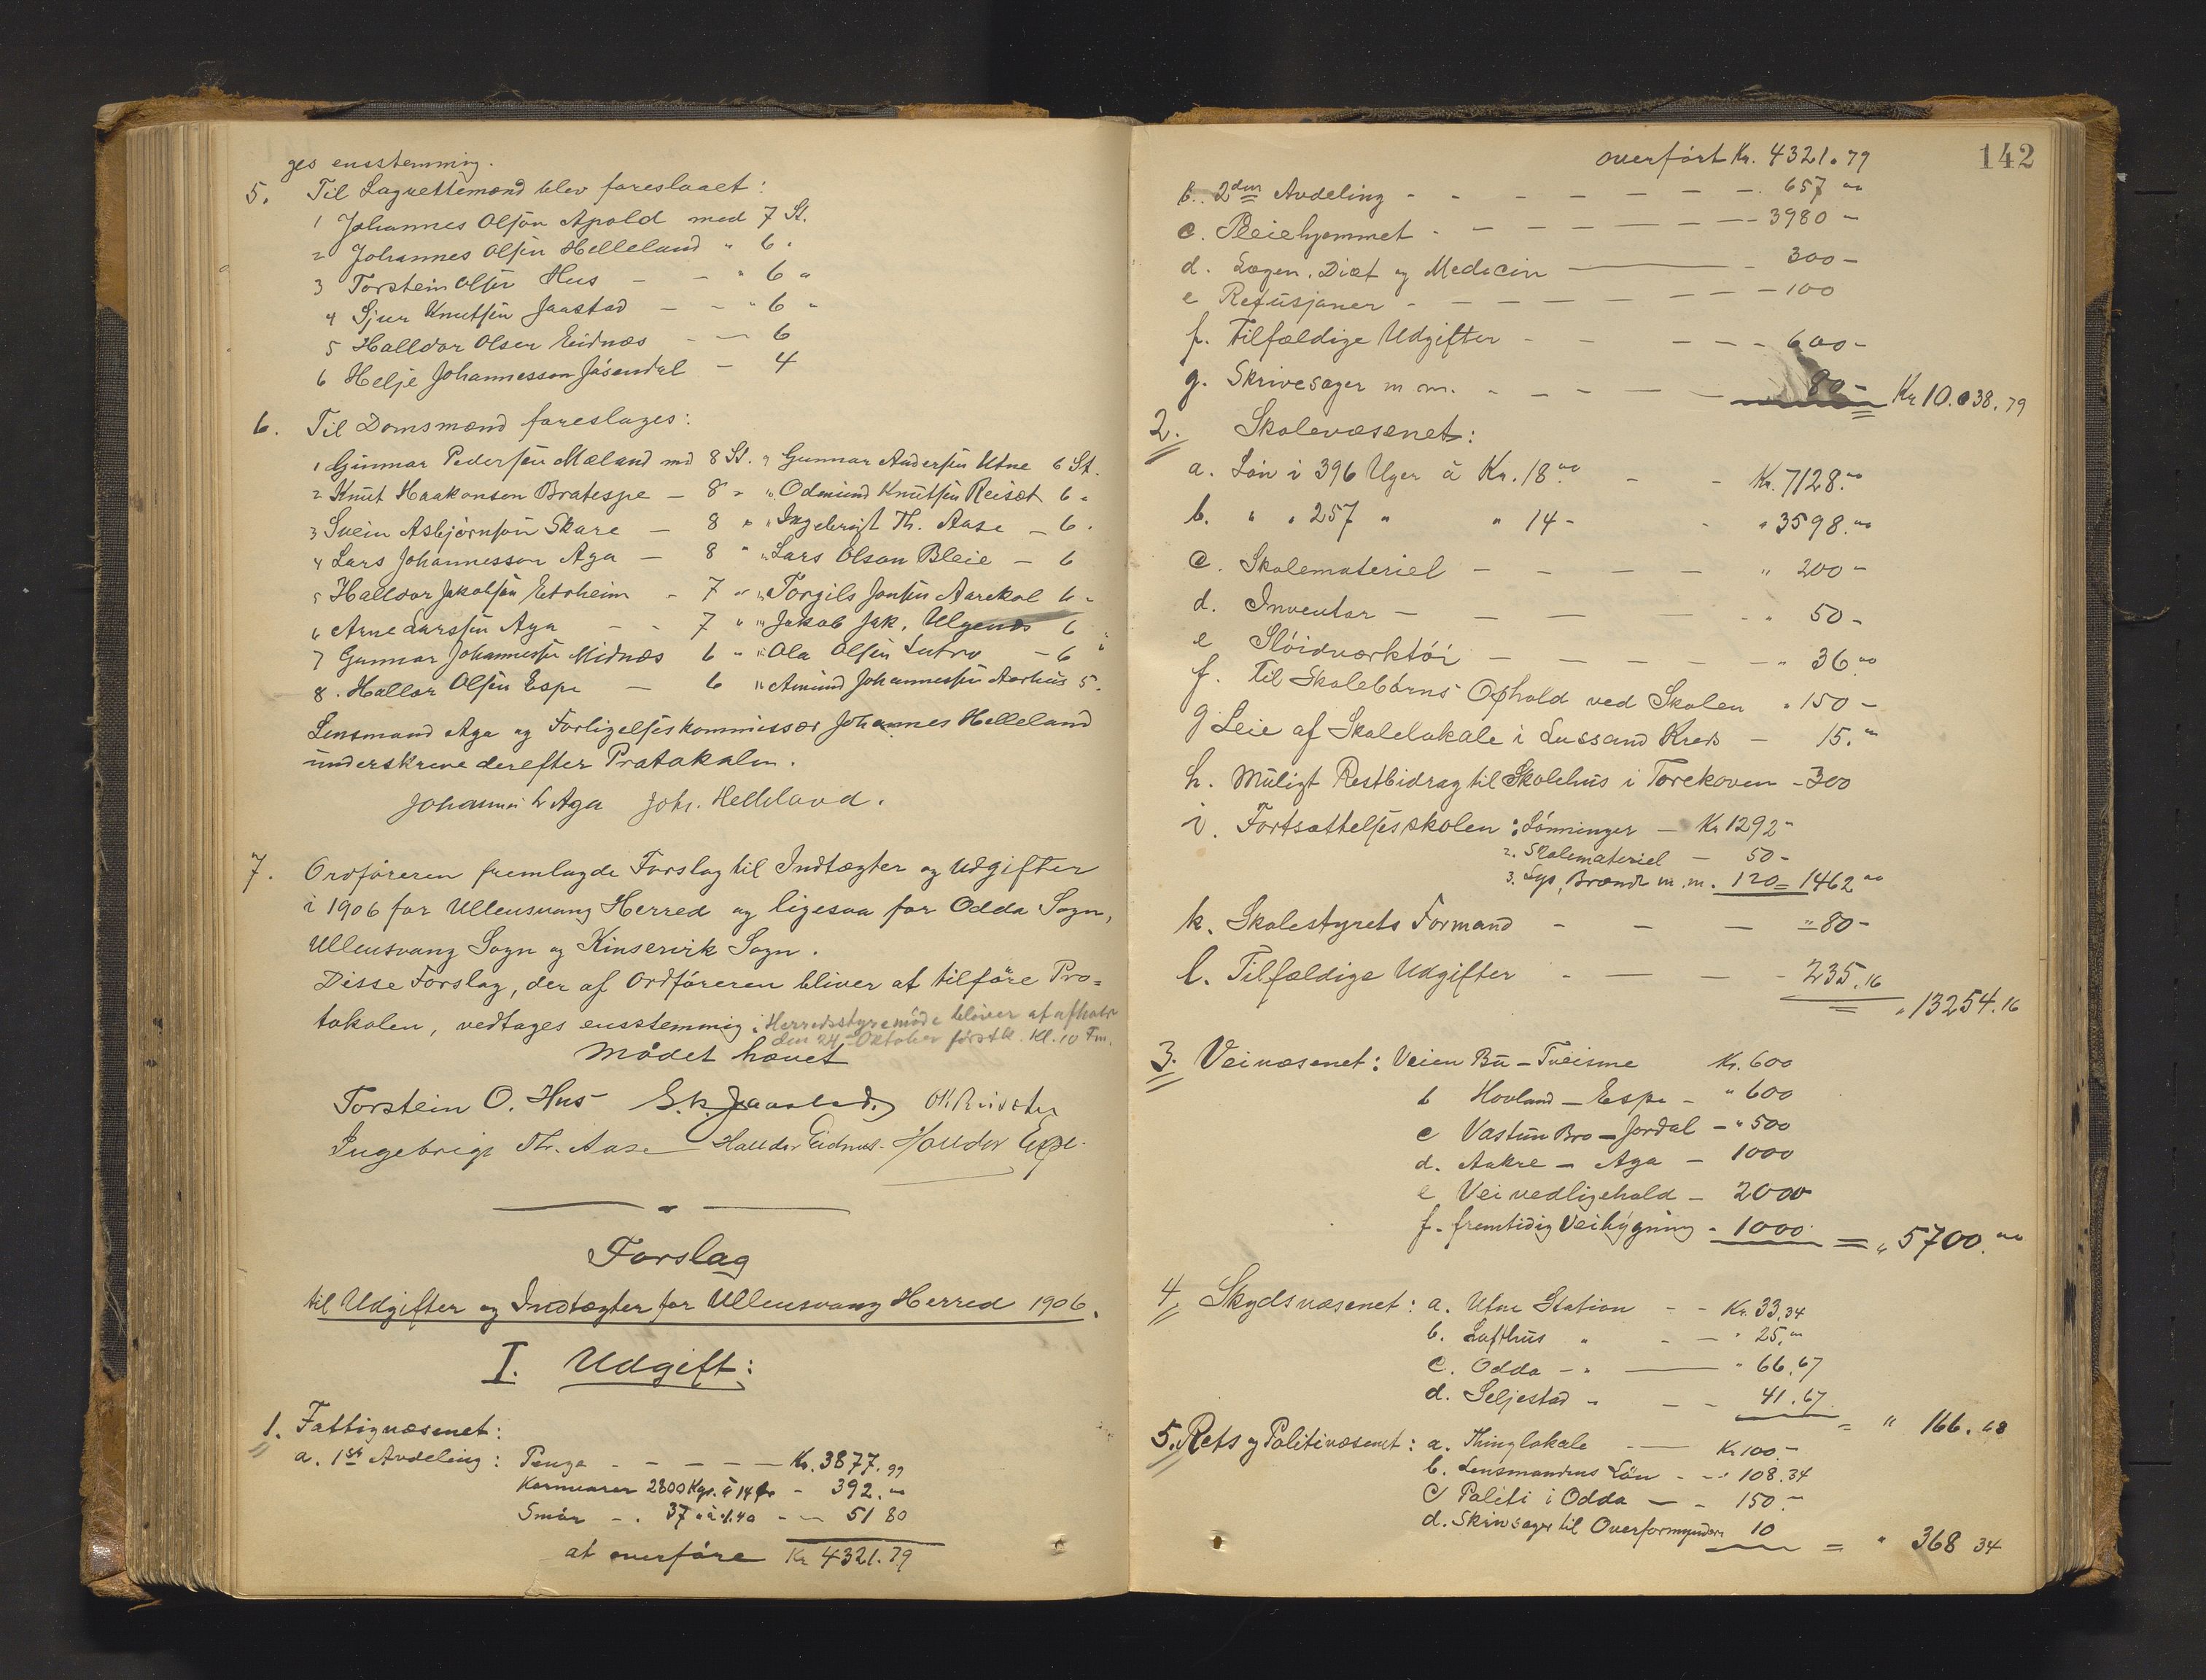 ges eensstemmig.
5. Til Lagrettemænd blev foreslaaet:
1 Johannes Olsøn Apold med 7 St.
2 Johannes Olsen Helleland " 6 "
3 Torstein Olsen Hus - - " 6 "
4 Sjur Knutsen Jaastad - - " 6 "
5 Halldor Olsen Eidnæs - - 6
6 Helje Johannesson Jåsendal - 4
6. Til Domsmænd foreslages:
1 Gunnar Pedersen Mæland md 8 St. 9 Gunnar Andersen Utne 6 St.
2 Knut Haakonson Bratespe - 8 " " Odmund Knutsen Reisæt 6 "
3 Svein Asbjørnsøn Skare - 8 " " Ingebrigt Th. Aase - 6 "
4 Lars Johannesson Aga - 8 " " Lars Olson Bleie - 6
5 Halldor Jakobsen Eitrheim - 7 " " Torgils Jonsen Aarekol 6 "
6 Arne Larssen Aga - - 7 " " Jakob Jak. Ulgenæs 6 "
7 Gunnar Johannessen Midnæs 6 " " Ola Olsen Lutro - 6 "
8. Hallor Olsen Espe - 6 " Amund Johannessen Aarhus 5.
Lensmand Aga og Forligelseskommissær Johannes Helleland
underskrev derefter Protokolen.
Johannes L Aga Johs. Helleland.
7. Ordføreren fremlagde Forslag til Indtægter og Udgifter
i 1906 for Ullensvang Herred og ligesaa for Odda Sogn,
Ullensvang Sogn og Kinservik Sogn.
Disse Forslag, der af Ordføreren bliver at tilføre Pro=
tokolen, vedtages eensstemmig. Herredsstyremøde bliver at afholde
den 24 Oktober førstk. Kl. 10 Fm.
Mødet hævet
Torstein O. Hus S. K. Jaastad. OK Reisæter
Ingebrigt Th. Aase Halldor Eidnæs. Halldor Espe.
Forslag
til Udgifter og Indtægter for Ullensvang Herred 1906.
I. Udgift:
1. Fattigvæsenet:
a. 1ste Avdeling: Penge - - - - - Kr. 3877.99
Kornvarer 2800 Kgr. à 14 Ør - 392.00
Smør - . 37 " à 1.40 - - 51 80
at overføre Kr 4321.79
142
overført Kr. 4321.79
b. 2den Avdeling - - - - - - - 657 00
c. Pleiehjemmet - - - - - - - 3980 -
d. Lægen, Diæt og Medicin - - 300 -
e Refusjoner - - - - - - - 100
f. Tilfældige Udgifter - - - - - 600 -
g. Skrivesager m m. - - - - - 80 - Kr 10.038.79
2. Skolevæsenet:
a. Løn i 396 Uger à Kr. 18.00 - - Kr. 7128.00
b. " " 257 " " 14 - - " 3598.00
c. Skolemateriel - - - - " 200 -
d. Inventar - - - - " 50 -
e Sløidværktøi - - - - - " 36.00
f. Til Skolebørns Ophold ved Skolen " 150 -
g Leie af Skolelokale i Lussand Kreds - 15.00
h. Muligt Restbidrag til Skolehus i Torekoven - 300
i. Fortsættelsesskolen: Lønninger - Kr 1292 -
2. Skolemateriel - 50 -
3. Lys, Brænde m. m. 120 = 1462 00
k. Skolestyrets Formand - - - " 80 -
l. Tilfældige Udgifter - - - 235.16
" 13254.16
3. Veivæsenet: Veien Bu - Tveisme Kr. 600
b Hovland - Espe - " 600
c Vastun Bro - Jordal - " 500
d. Aakre - Aga - 1000
e Vei vedligehold - 2000
f. fremtidig Veibygning - 1000 = " 5700.00
4. Skydsvæsenet: a. Utne Station - - Kr. 33.34
b. Lofthus " - - " 25.00
c. Odda - " - " 66.67
d. Seljestad " - - 41.67
= " 166.68
5. Rets og Politivæsenet: a. Thinglokale - Kr 100 -
b. Lensmandens Løn - - " 108.34
c Politi i Odda - - 150.-
d. Skrivsager til Overformynderi 10
= " 368 34